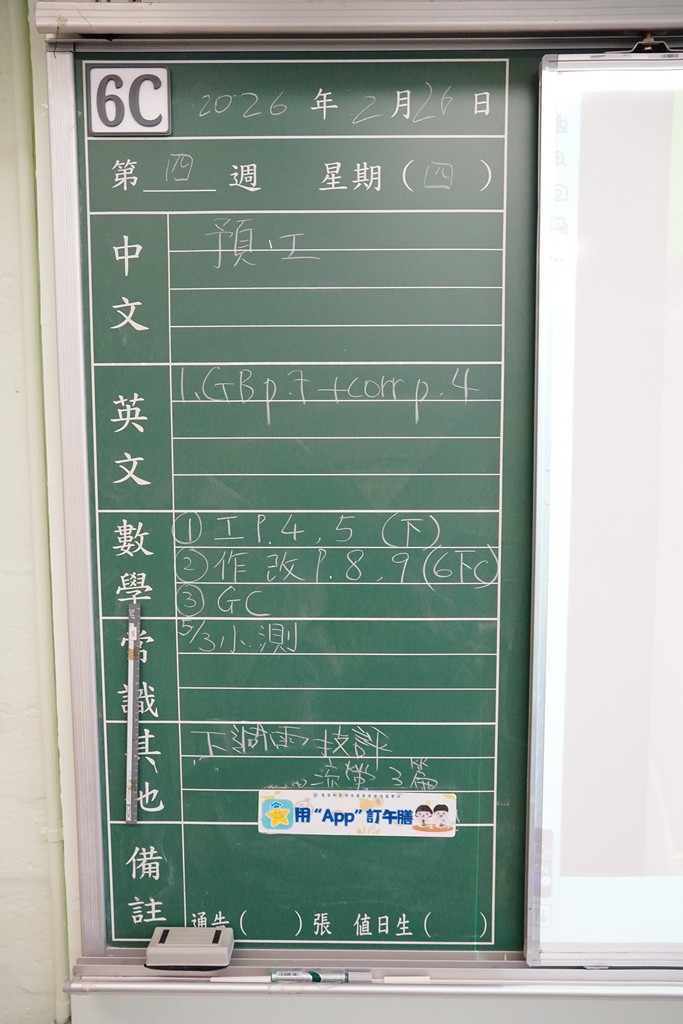 6C 2026年2月26日
第四週 星期(四)
中文 預.工
英文 1. GB p.7 + corr p.4
數學 ① 工 P.4, 5 (下)
② 作 改 P.8, 9 (6下C)
③ GC
常識 5/3 小測
其他 下週 技評
流螢 3篇
用“App”訂午膳
備註
通告( )張 值日生( )